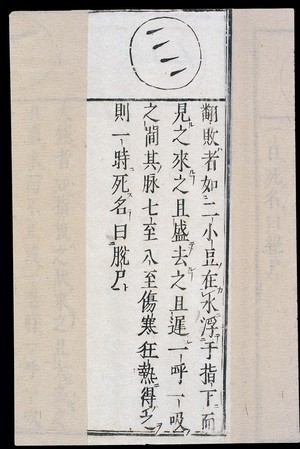 翻敗者如二小豆在水浮于指下而
見之來之且盛去之且遲一呼一吸
之間其脉七至八至傷寒狂熱得之
則一時死名曰脫尸